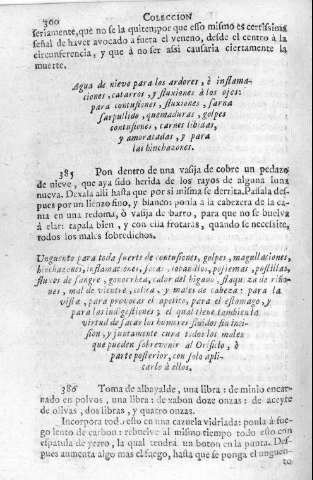 300 COLECCION
seriamente, que no se la quiten; por que esso mismo es certissima
señal de haver avocado à fuera el veneno, desde el centro à la
circunferencia, y que à no ser assi causaria ciertamente la
muerte.
Agua de nieve para los ardores, ò inflama-
ciones, catarros, y fluxiones à los ojos:
para contusiones, fluxiones, sarna
sarpullido, quemaduras, golpes
contusiones, carnes libidas,
y amoratadas, y para
las hinchazones.
385 Pon dentro de una vasija de cobre un pedazo
de nieve, que aya sido herida de los rayos de alguna luna
nueva. Dexala alli hasta que por si misma se derrita. Passala des-
pues por un lienzo fino, y blanco: ponla à la cabezera de la ca-
ma en una redoma, ò vasija de barro, para que no se buelva
à elar: tapala bien, y con ella frotaràs, quando se necessite,
todos los males sobredichos.
Unguento para toda suerte de contusiones, golpes, magullaciones,
hinchazones, inflamaciones, sabañones, postemas, postillas,
fluxos de sangre, gonorrhea, calor del higado, flaqueza de riño-
nes, mal de vientre, colica, y males de cabeza: para la
vista, para provocar el apetito, para el estomago, y
para las indigestiones; el qual tiene tambien la
virtud de sacar los humores fluidos sin inci-
sion, y juntamente cura todos los males
que pueden sobrevenir al Orificio, ò
parte posterior, con solo apli-
carlo à ellos.
386 Toma de albayalde, una libra: de minio encar-
nado en polvos, una libra: de xabon doze onzas: de aceyte
de olivas, dos libras, y quatro onzas.
Incorpora todo esto en una cazuela vidriada: ponla à fue-
go lento de carbon: rebuelve al mismo tiempo todo esto con
espatula de yerro, la qual tendrà un boton en la punta. Des-
pues aumenta algo mas el fuego, hasta que se ponga el unguen-
to